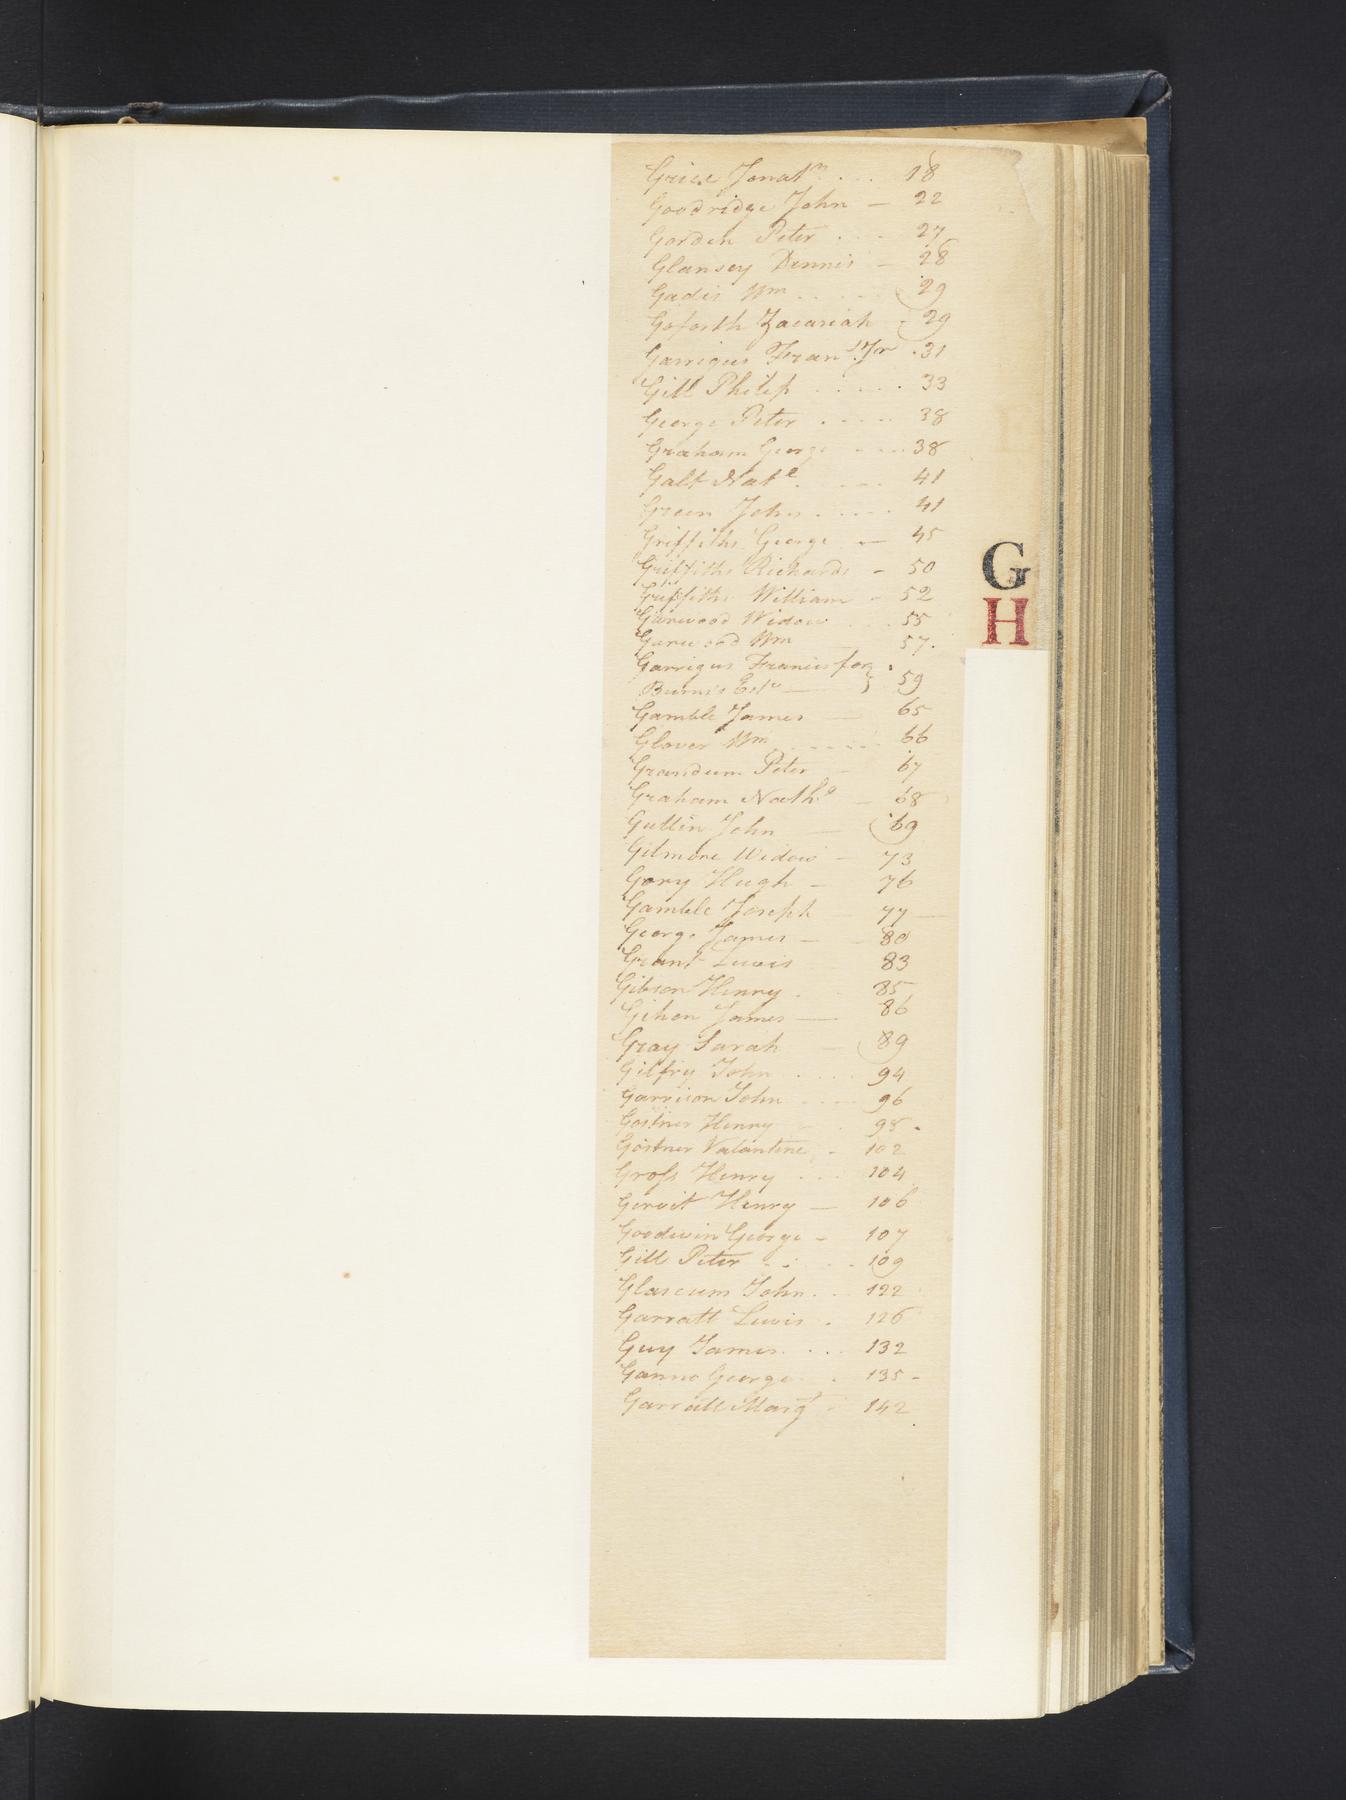 Grice Jonatn ... 18
Goodridge John — 22
Gorden Peter ... 27
Glansey Dennis — 28
Gadis Wm .... 29
Goforth Zacariah - 29
Garrigus Frans Jr . 31
Gill Philip ..... 33
George Peter .... 38
Graham George .... 38
Galt Natl .... 41
Green John .... 41
Griffiths George — 45
Griffiths Richards - 50
Griffiths William - 52
Garwood Widow ... 55
Garwood Wm 57.
Garrigus Francis for
Burns's Este — } 59
Gamble James — 65
Glover Wm ..... 66
Grandum Peter — 67
Graham Nathl — 68
Gullin John — 69
Gilmore Widow — 73
Gory Hugh — 76
Gamble Joseph — 77
George James — 80
Grant Lewis 83
Gibson Henry . 85
Gihon James — 86
Gray Sarah — 89
Gilfry John .... 94
Garrison John .... 96
Gostner Henry 98.
Gostner Valantine - 102
Gross Henry ... 104
Henry — 106
Goodwin George - 107
Gill Peter .... 109
Glascum John ... 122
Garratt Lewis . 126
Guy James ... 132
George . 135-
Garratt Margt . 142
G
H